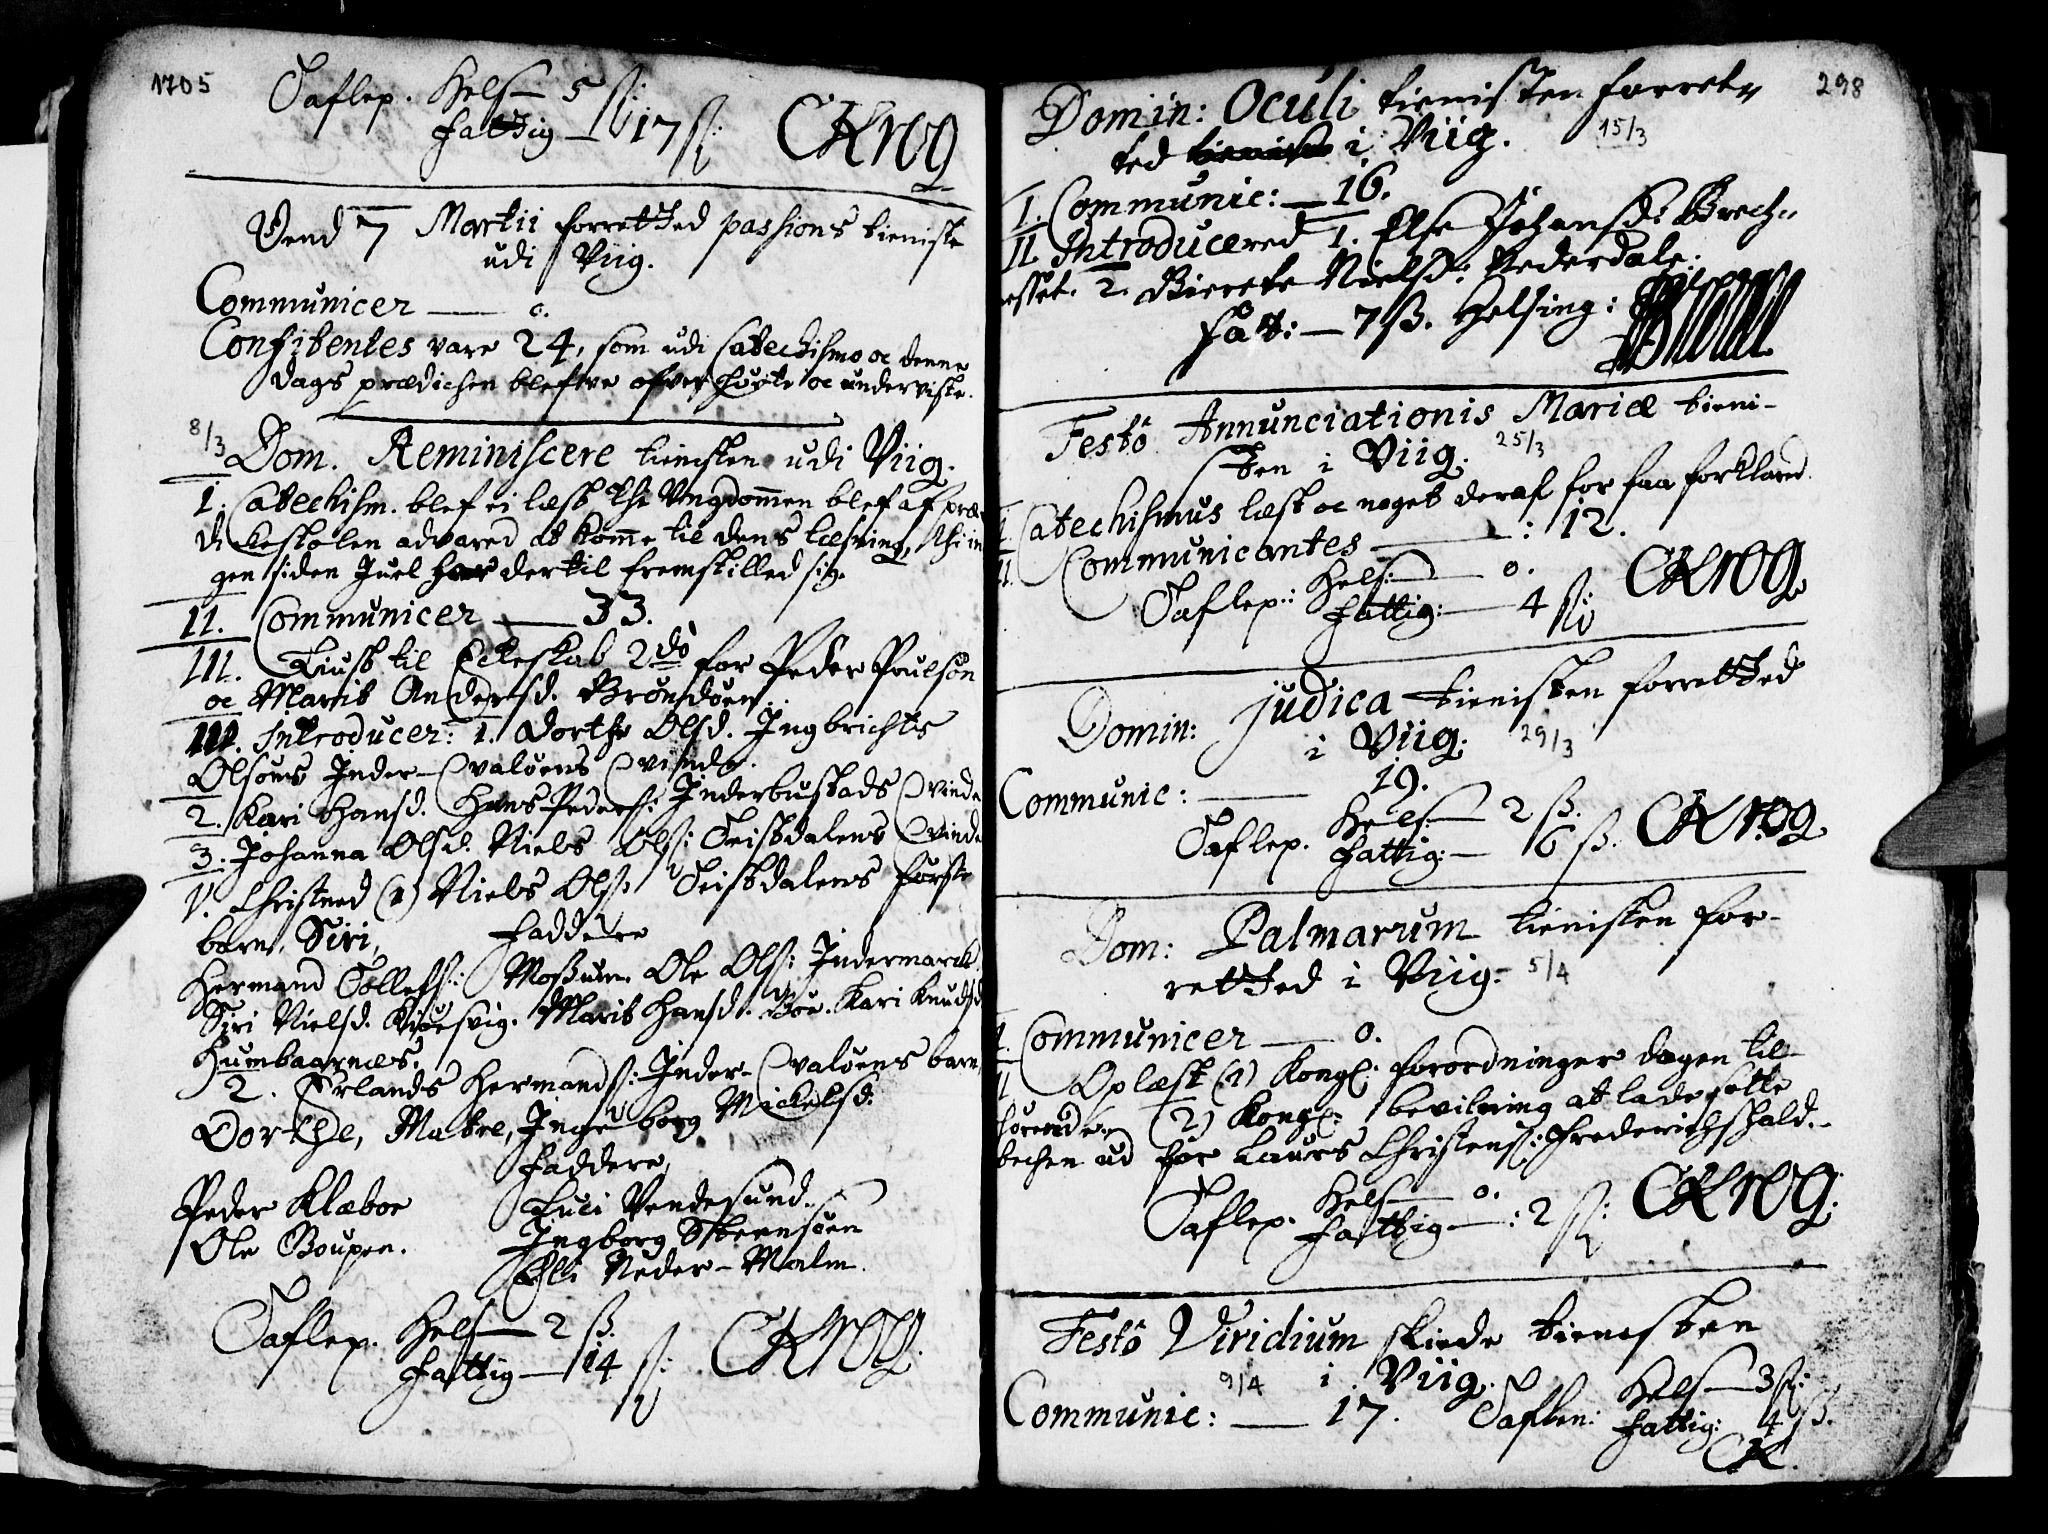 1705
Taflep. Hels — 5 ß:
Fattig — 17 ß: CKrog
Dend 7 Martii forretted passions tieniste
udi Viig.
Communicer — 0.
Confitentes vare 24, som udi Catechismo oc denne
dags prædichen blefve ofverhørte oc underviste.
8/3 Dom. Reminiscere tienisten udi Viig.
I. Catechism. blef ei læst thi Ungdommen blef af præ-
dickestolen advared at komme til dens læsning, thi in-
gen siden Juel har dertil fremstilled sig.
II. Communicer — 33.
III. Liust til Ecteskab 2do for Peder Poulsøn
oc Marit Andersd. Brøndøen.
Introducer: 1. Dorthe Olsd. Ingbricht
Olsøns Inder-Qvaløens Qvinde.
2. Kari Hansd. Hans Peders: Inderbustads Qvinde
3. Johanna Olsd. Niels Ols: Teistdalens Qvinde
V. Christned (1) Niels Ols: Teistdalens første
barn, Siri,
Faddere
Hermand Tollefs: Moßum. Ole Ols: Indermarck.
Siri Nielsd. Marit Hansd. Boe. Kari Knudsd.
Humbaarnæs.
2. Erlands Hermands: Inder-Qvaløens barn,
Dorthe, Matre, Ingeborg Mickelsd.
Faddere,
Peder Klæboe Luci Vendesund.
Ole Boupen. Ingborg Steensøen
Elli Neder-Malm.
Taflep. Hels — 2 ß.
Fattig — 14 ß: CKrog.
298
Domin: Oculi tienisten forret-
ted i Viig. 15/3
I. Communic: — 16.
II. Introducered 1. Else Johansd: Brech-
esset. 2. Birrete Nielsd: Nederdale.
Fatt: — 7 ß. Helsing:
Festo Annunciationis Mariæ tieni-
sten i Viig. 25/3
I. Catechismus læst oc noget deraf for faa forklared.
II. Communicantes — : 12.
Taflep: Hels: — 0.
Fattig: — 4 ß: CKrog.
Domin: Judica tienisten forretted
i Viig. 29/3
Communic: — 19.
Taflep. Hels: — 2 ß.
Fattig: — 6 ß. CKrog
Dom: Palmarum tienisten for-
retted i Viig. 5/4
I. Communicer — 0.
II. Oplæst (1) Kongl: forordninger dagen til-
hørende. (2) Kongl: bevilning at lade sette
bechen ud for Laurs Christens: Frederichshald.
Taflep. Hels — 0.
Fattig — : 2 ß: CKrog.
Festo Viridium skeede tienisten
9/4 i Viig.
Communic: — 17. Taflen: Hels — 3 ß:
Fattig: 4 ß.
CK.